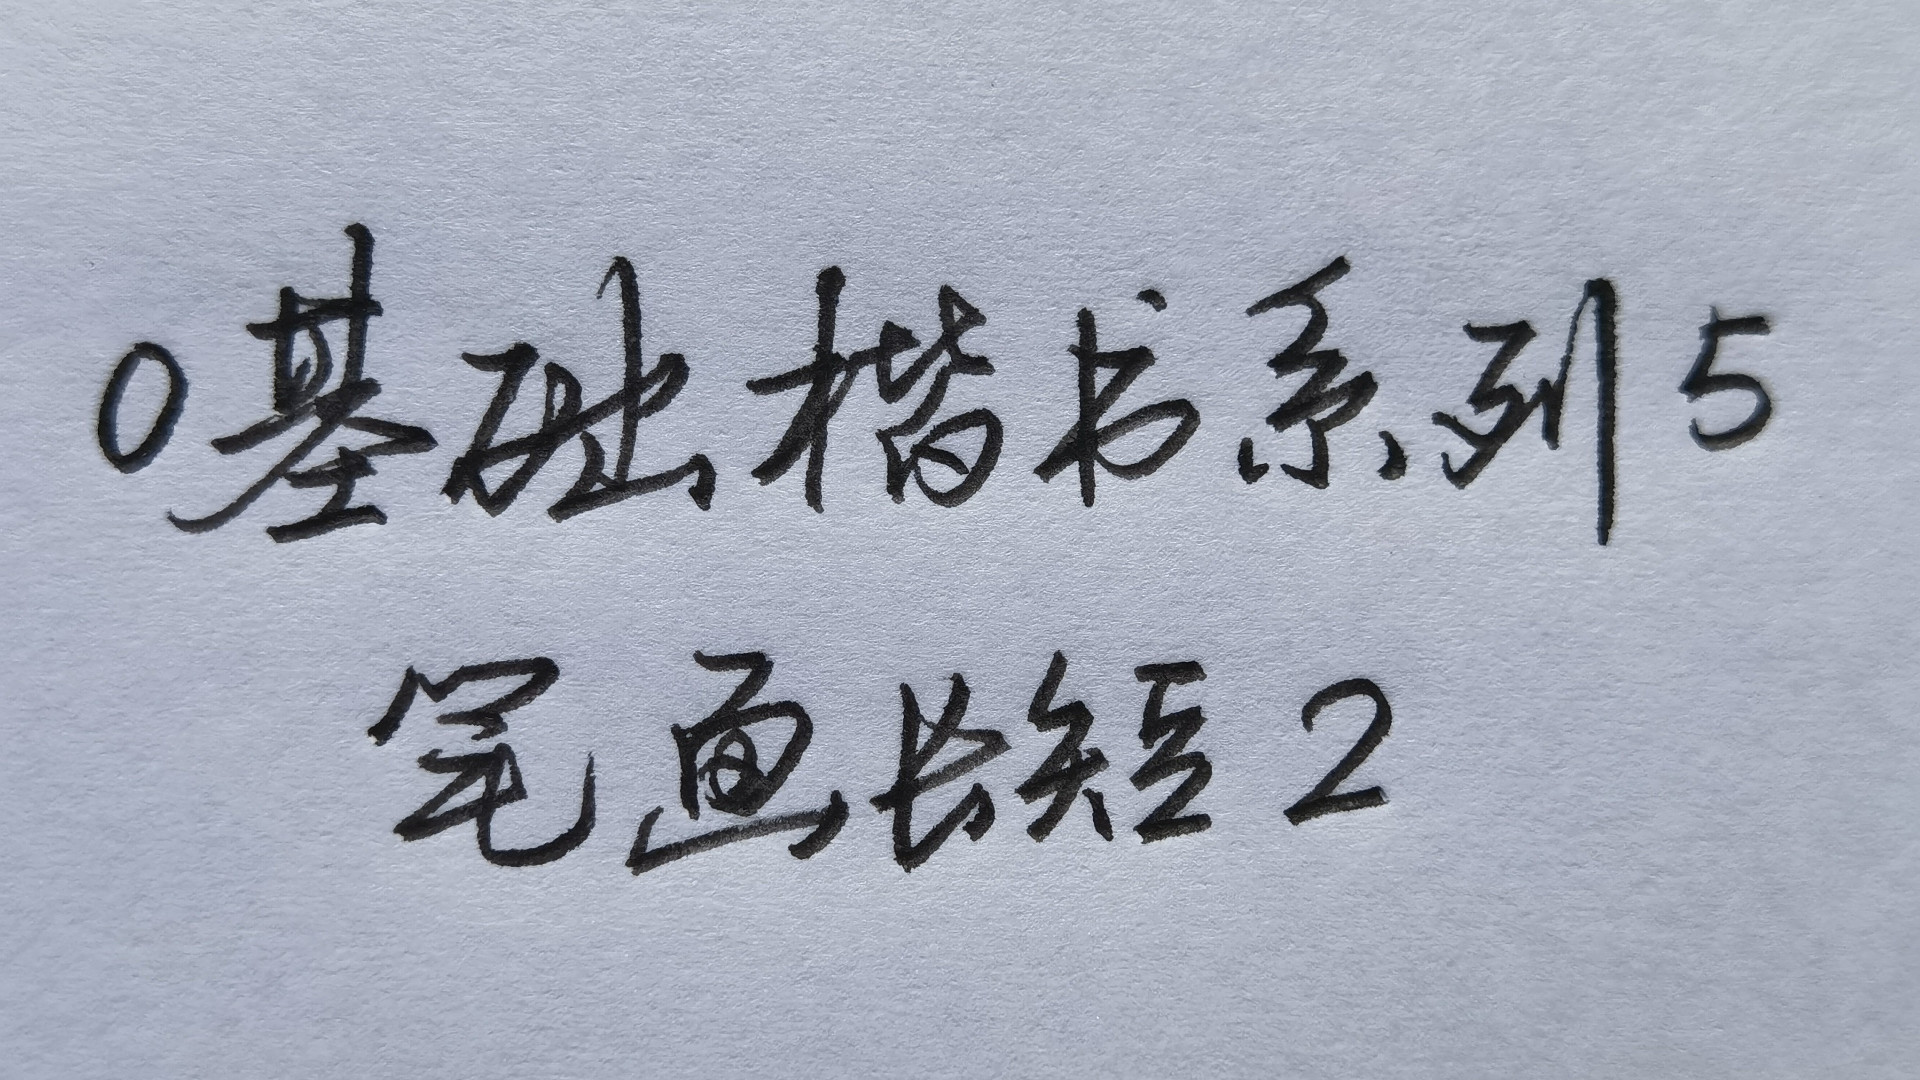 0基础楷书系列5
笔画长短2